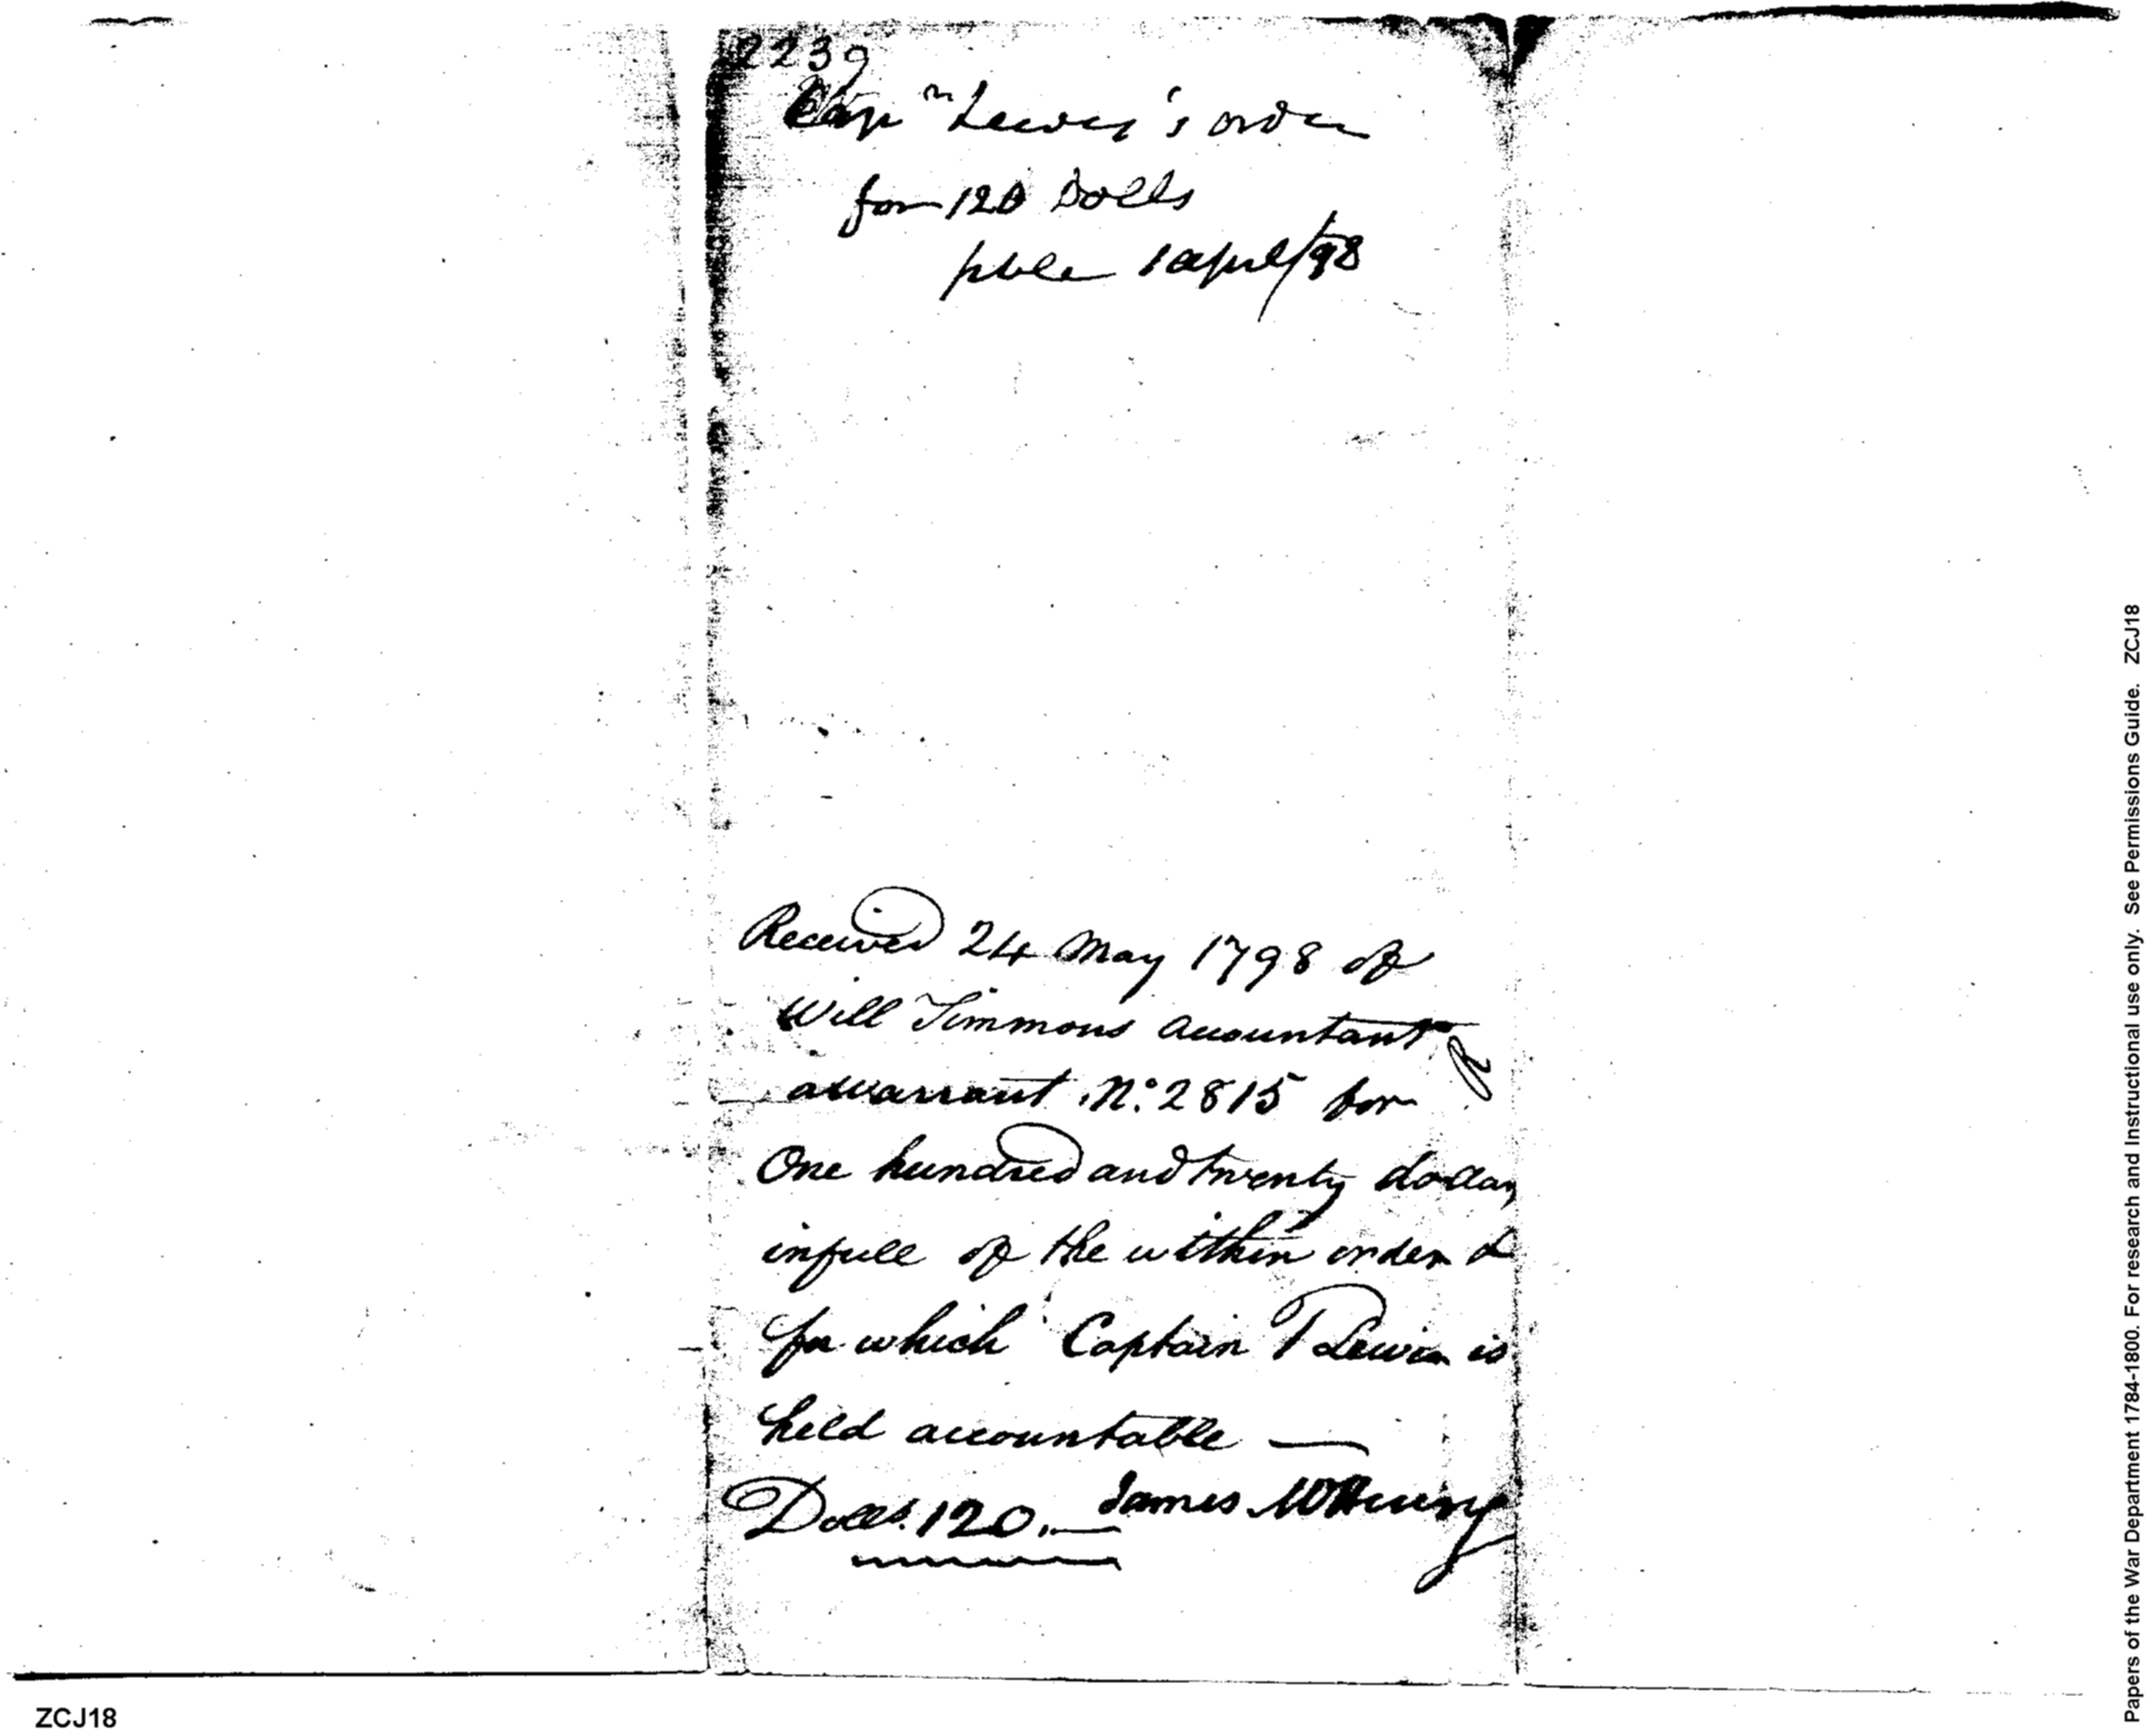 2239
Capn Lewis's order
for 120 Dolls
pble 1 april/98
Received 24 May 1798 of
Will Simmons Accountant
a warrant No. 2815 for
One hundred and twenty dollars
in full of the within order &
for which Captain T Lewis is
held accountable —
Dolls. 120. — James McHenry
ZCJ18
Papers of the War Department 1784-1800. For research and Instructional use only. See Permissions Guide. ZCJ18